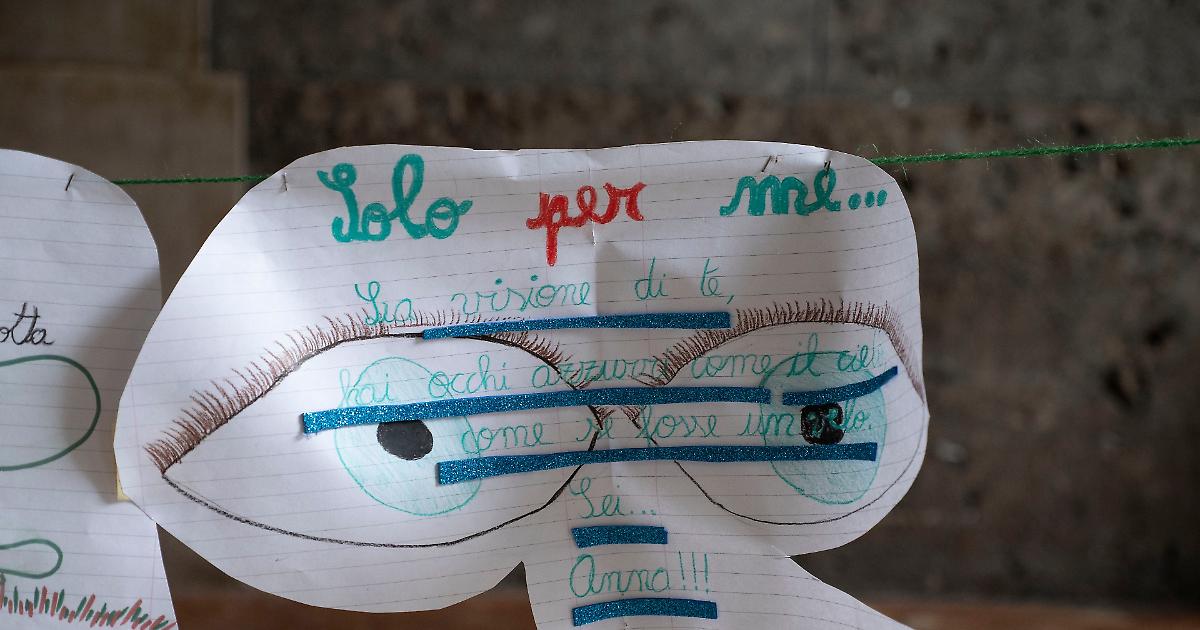 Solo per me...
La visione di te,
hai occhi azzurri come il cielo
come se fosse un velo.
Sei...
Anna!!!
otta